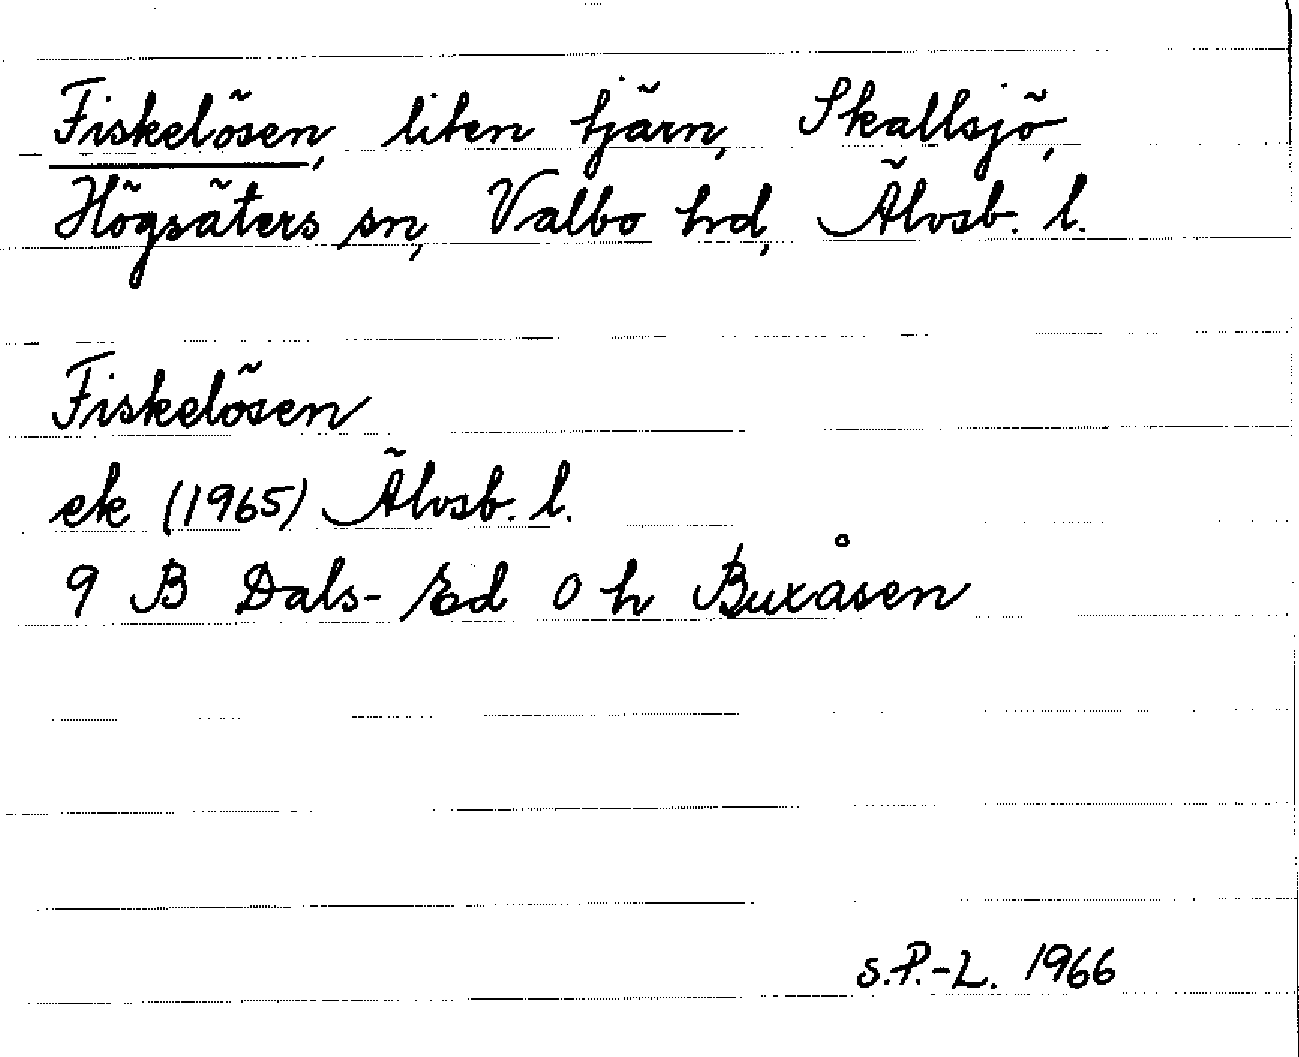 Fiskelösen, liten tjärn, Skallsjö,
Högsäters sn, Valbo hrd, Älvsb. l.
Fiskelösen
ek (1965) Älvsb. l.
9 B Dals-Ed 0 h Buxåsen
S.P.-L. 1966